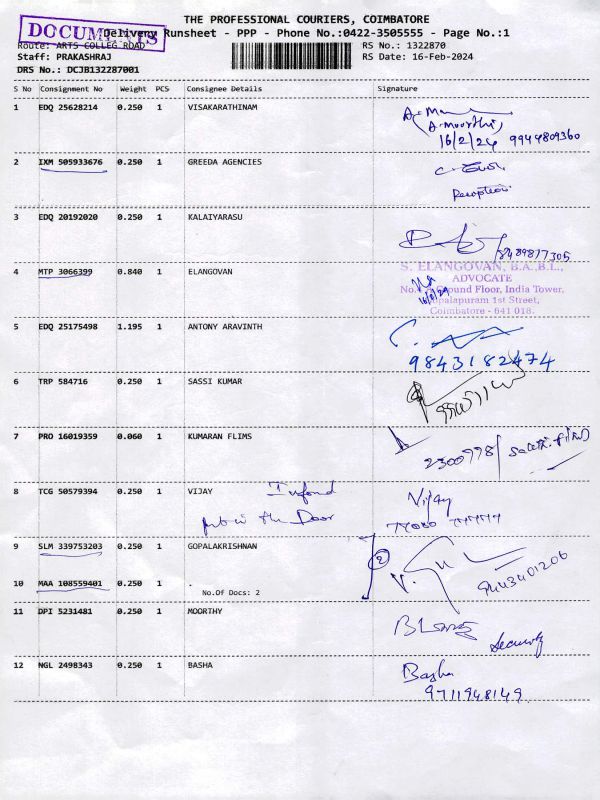 THE PROFESSIONAL COURIERS, COIMBATORE
DOCUMENTS
Delivery Runsheet - PPP - Phone No.:0422-3505555 - Page No.:1
Route: ARTS COLLEG ROAD
RS No.: 1322870
Staff: PRAKASHRAJ
RS Date: 16-Feb-2024
DRS No.: DCJB132287001
S No Consignment No Weight PCS Consignee Details Signature
1 EDQ 25628214 0.250 1 VISAKARATHINAM
(A.Moorthi)
16/2/24 9944809360
2 IXM 505933676 0.250 1 GREEDA AGENCIES
Reception
3 EDQ 20192020 0.250 1 KALAIYARASU
8489817305
4 MTP 3066399 0.840 1 ELANGOVAN
S. ELANGOVAN, B.A.,B.L.,
ADVOCATE
Ground Floor, India Tower,
1st Street,
Coimbatore - 641 018.
5 EDQ 25175498 1.195 1 ANTONY ARAVINTH
9843182474
6 TRP 584716 0.250 1 SASSI KUMAR
7 PRO 16019359 0.060 1 KUMARAN FLIMS
2300998/
8 TCG 50579394 0.250 1 VIJAY
put in the Door
Vijay
9 SLM 339753203 0.250 1 GOPALAKRISHNAN
2
9443401206
10 MAA 108559401 0.250 1 .
No.Of Docs: 2
11 DPI 5231481 0.250 1 MOORTHY
Security
12 NGL 2498343 0.250 1 BASHA
Basha
9711948149